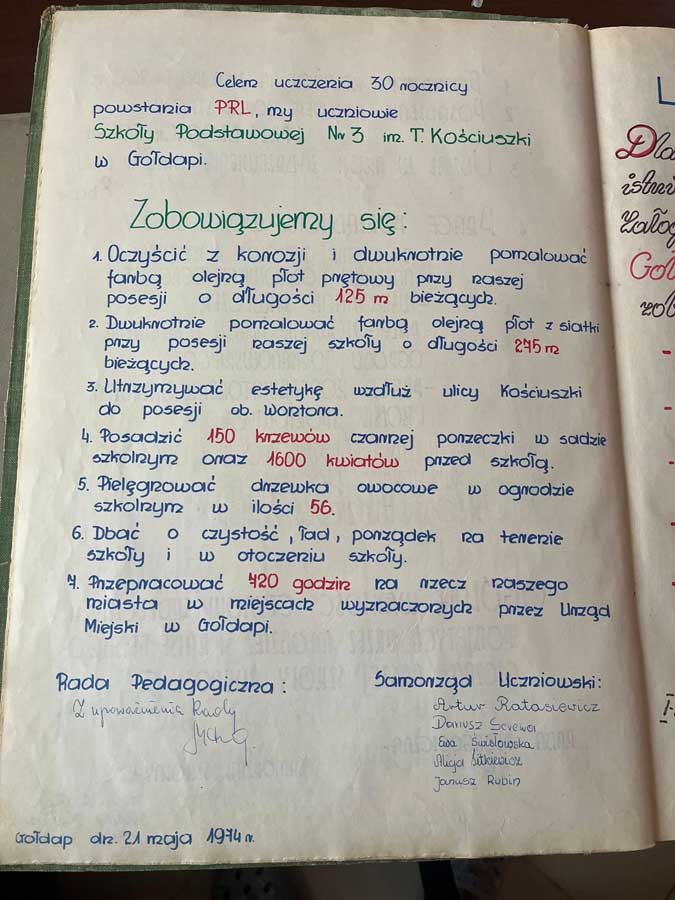 Celem uczczenia 30 rocznicy
powstania PRL, my uczniowie
Szkoły Podstawowej Nr 3 im. T. Kościuszki
w Gołdapi.
Zobowiązujemy się:
1. Oczyścić z korozji i dwukrotnie pomalować
farbą olejną płot prętowy przy naszej
posesji o długości 125 m bieżących.
2. Dwukrotnie pomalować farbą olejną płot z siatki
przy posesji naszej szkoły o długości 275 m
bieżących.
3. Utrzymywać estetykę wzdłuż ulicy Kościuszki
do posesji ob. Wortona.
4. Posadzić 150 krzewów czarnej porzeczki w sadzie
szkolnym oraz 1600 kwiatów przed szkołą.
5. Pielęgnować drzewka owocowe w ogrodzie
szkolnym w ilości 56.
6. Dbać o czystość, ład, porządek na terenie
szkoły i w otoczeniu szkoły.
7. Przepracować 720 godzin na rzecz naszego
miasta w miejscach wyznaczonych przez Urząd
Miejski w Gołdapi.
Rada Pedagogiczna:
Z upoważnienia Rady
Samorząd Uczniowski:
Artur Ratasiewicz
Dariusz
Ewa Świsłowska
Alicja Sitkiewicz
Janusz Rubin
Gołdap dn. 21 maja 1974 r.